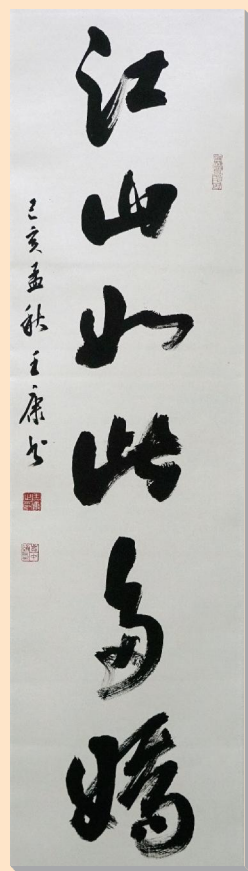 江山如此多娇
己亥孟秋王康书